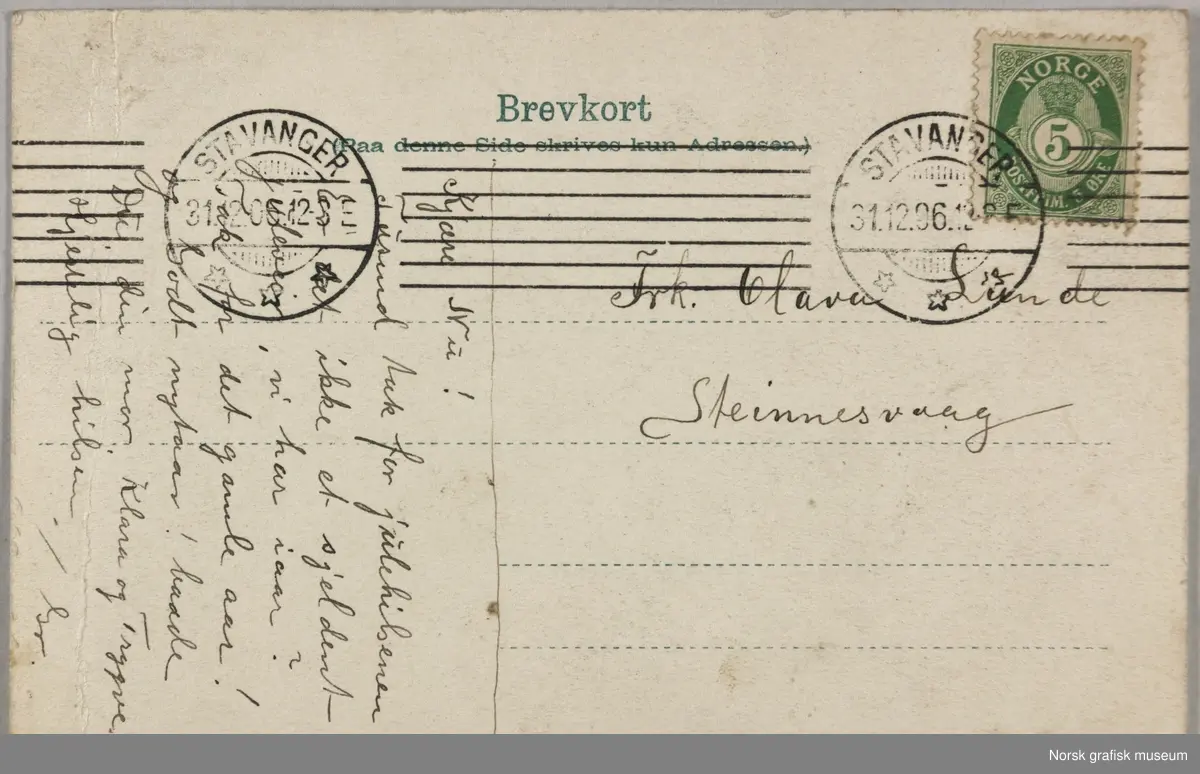 Brevkort
(Paa denne Side skrives kun Adressen.)
NORGE
5
POSTFRIM. 5 ØRE
STAVANGER
31.12.06.12
STAVANGER
31.12.06.12
Frk. Olava Lunde
Steinnesvaag
Kjære Nu!
tak for julehilsenen
det ikke et sjeldent
julevær, vi har iaar?
Tak for det gamle aar!
og Godt nytaar! baade
Du, din mor, Klara og Trygve.
Hjertelig hilsen.
Norsk grafisk museum